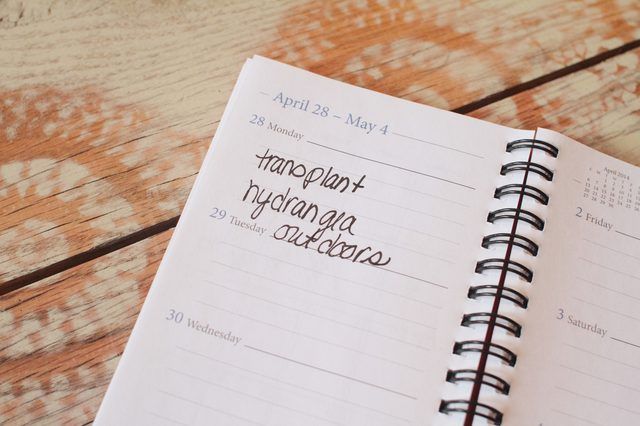 April 28 – May 4
28 Monday
transplant
hydrangea
29 Tuesday
outdoors
30 Wednesday
April 2014
2 Friday
3 Saturday